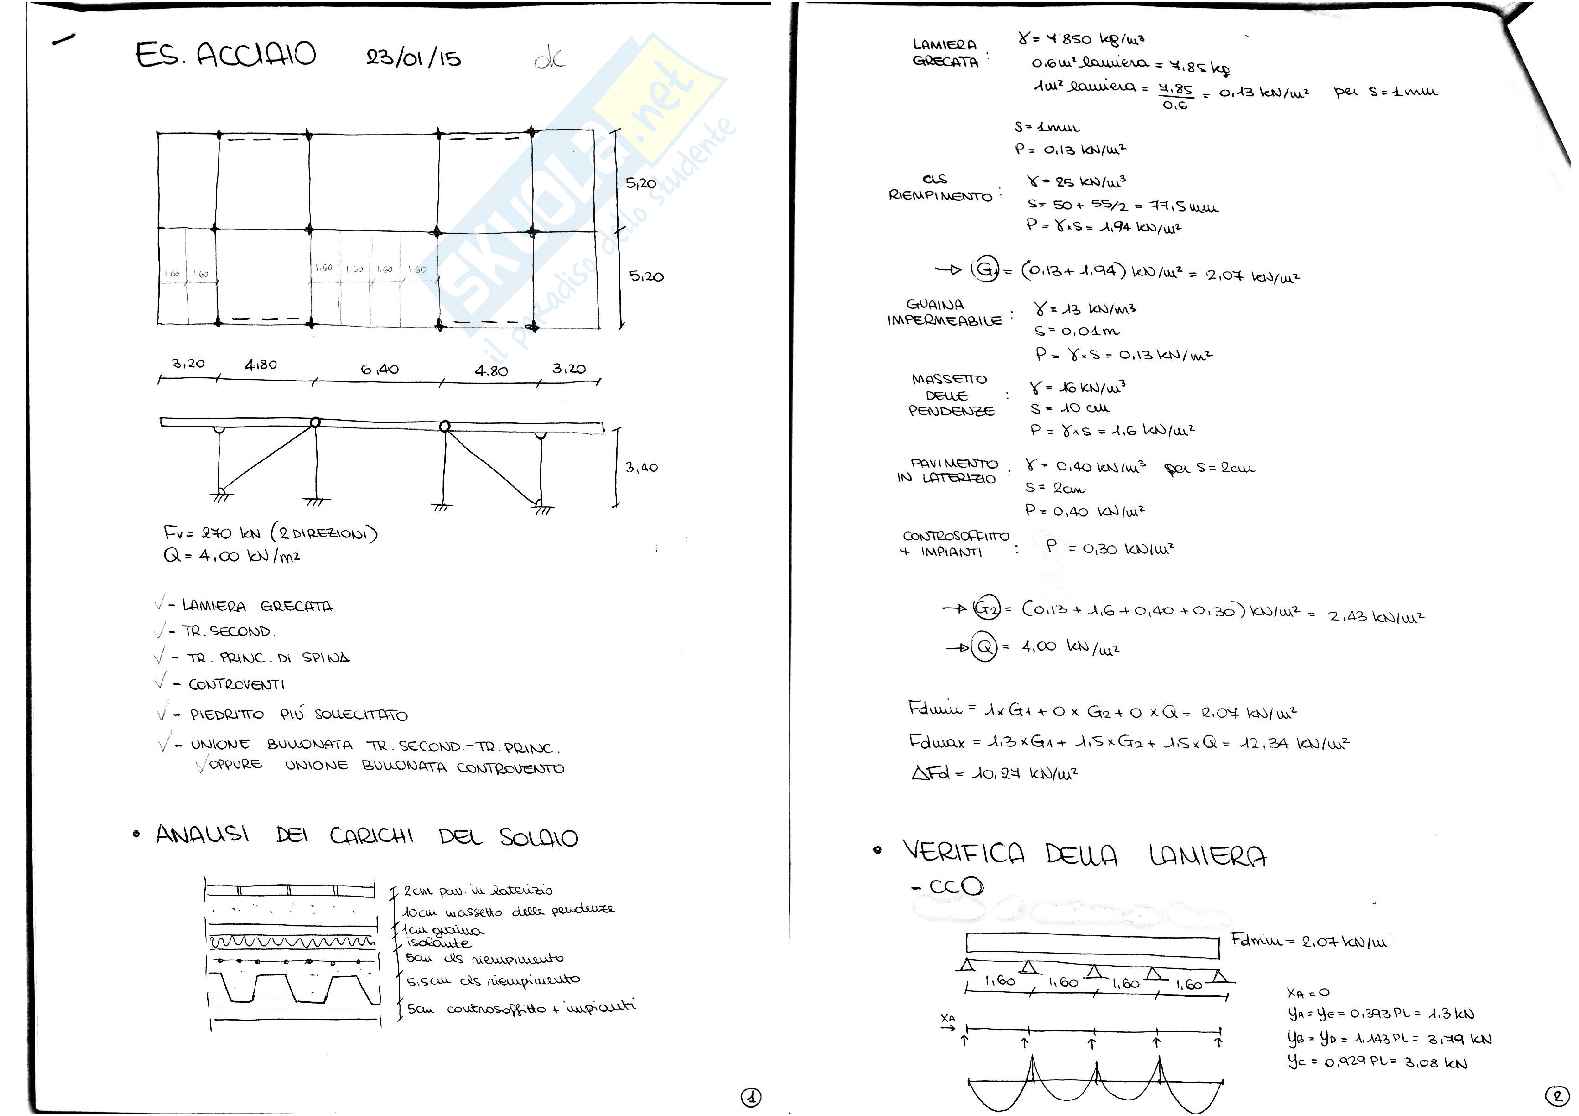 ES. ACCIAIO 23/01/15 ok
5,20
1,60 1,60 1,60 1,60 1,60 1,60
5,20
3,20 4,80 6,40 4,80 3,20
3,40
Fv = 270 kN (2 DIREZIONI)
Q = 4,00 kN/m²
√ - LAMIERA GRECATA
√ - TR. SECOND.
√ - TR. PRINC. DI SPINA
√ - CONTROVENTI
√ - PIEDRITTO PIÚ SOLLECITATO
√ - UNIONE BULLONATA TR. SECOND.-TR. PRINC.
√OPPURE UNIONE BULLONATA CONTROVENTO
• ANALISI DEI CARICHI DEL SOLAIO
2cm pav. in laterizio
10cm massetto delle pendenze
1cm guaina
isolante
5cm cls riempimento
5,5cm cls riempimento
5cm controsoffitto + impianti
1
skuola.net
il paradiso dello studente
LAMIERA GRECATA : γ = 7850 kg/m³
0,6m² lamiera = 7,85 kg
1m² lamiera = 7,85/0,6 = 0,13 kN/m² per s = 1mm
s = 1mm
P = 0,13 kN/m²
CLS RIEMPIMENTO : γ = 25 kN/m³
s = 50 + 55/2 = 77,5mm
P = γ×s = 1,94 kN/m²
→ G1 = (0,13 + 1,94) kN/m² = 2,07 kN/m²
GUAINA IMPERMEABILE : γ = 13 kN/m3
s = 0,01m
P = γ×s = 0,13 kN/m²
MASSETTO DELLE PENDENZE : γ = 16 kN/m³
s = 10 cm
P = γ×s = 1,6 kN/m²
PAVIMENTO IN LATERIZIO : γ = 0,40 kN/m³ per s = 2cm
s = 2cm
P = 0,40 kN/m²
CONTROSOFFITTO + IMPIANTI : P = 0,30 kN/m²
→ G2 = (0,13 + 1,6 + 0,40 + 0,30) kN/m² = 2,43 kN/m²
→ Q = 4,00 kN/m²
Fdmin = 1×G1 + 0×G2 + 0×Q = 2,07 kN/m²
Fdmax = 1,3×G1 + 1,5×G2 + 1,5×Q = 12,34 kN/m²
ΔFd = 10,27 kN/m²
• VERIFICA DELLA LAMIERA
- CCO
Fdmin = 2,07 kN/m
1,60 1,60 1,60 1,60
XA
XA = 0
YA = YE = 0,393 PL = 1,3 kN
YB = YD = 1,143 PL = 3,79 kN
YC = 0,929 PL = 3,08 kN
2